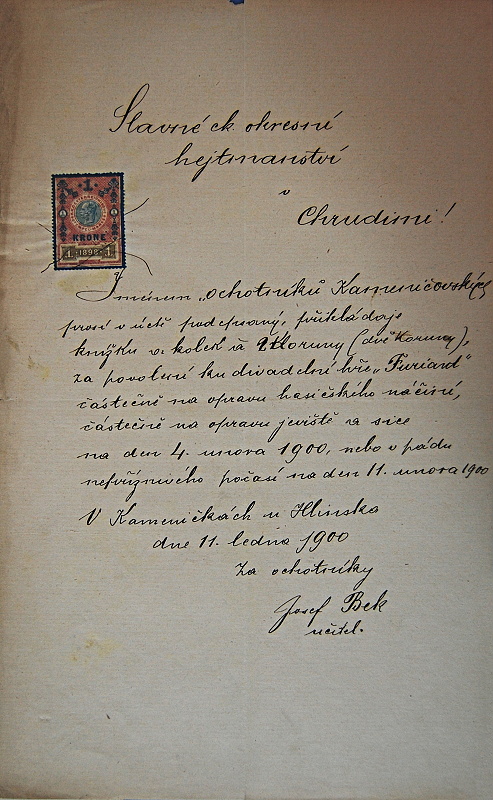 Slavné ck. okresní
hejtmanství
v
Chrudimi!
1
KRONE
1 1898 1
Jménem „ochotníků Kameničovských"
prosí v úctě podepsaný, přikládaje
knížku a kolek à 2 Koruny (dvě koruny),
za povolení ku divadelní hře „Furiant"
částečně na opravu hasičského náčiní,
částečně na opravu jeviště a sice
na den 4. února 1900, nebo v pádu
nepříznivého počasí na den 11. února 1900
V Kameničkách u Hlinska
dne 11. ledna 1900
Za ochotníky
Josef Bek
učitel.